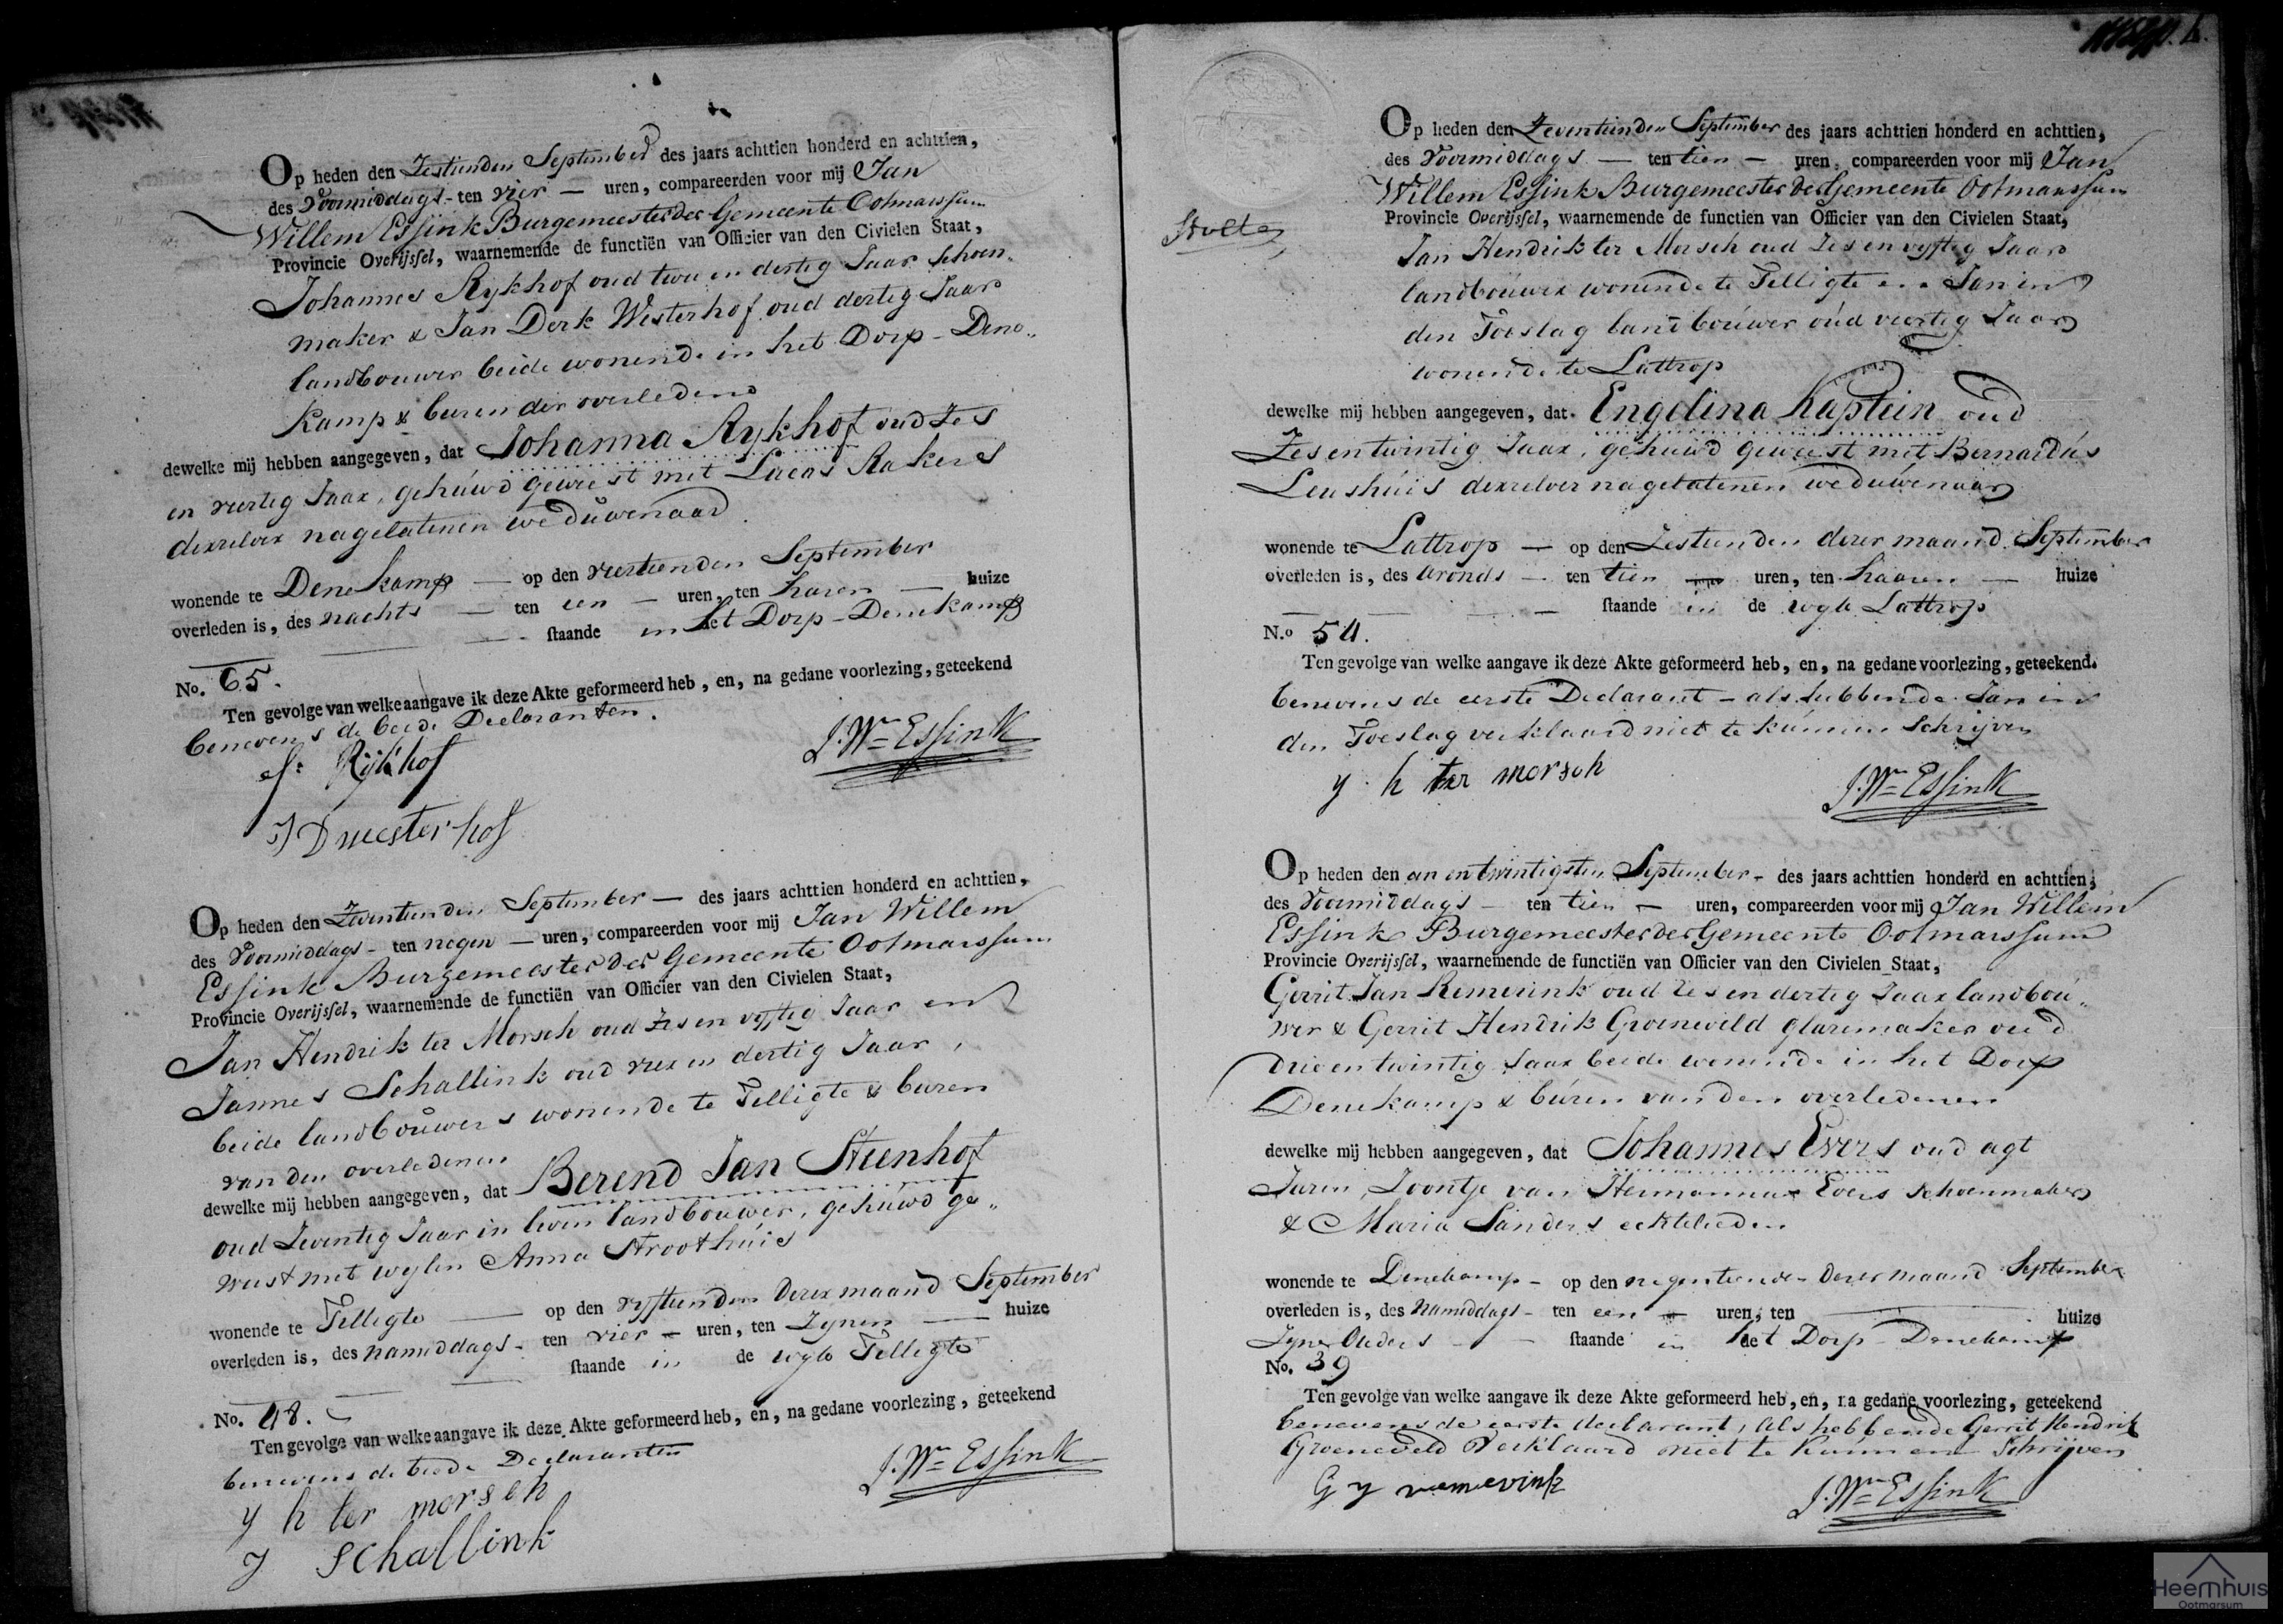 Op heden den Zestienden September des jaars achttien honderd en achttien,
des Voormiddags - ten vier — uren, compareerden voor mij Jan
Willem Essink Burgemeester der Gemeente Ootmarssum
Provincie Overijssel, waarnemende de functiën van Officier van den Civielen Staat,
Johannes Rykhof oud twee en dertig Jaar Schoen-
maker & Jan Derk Westerhof oud dertig Jaar
landbouwer beide wonende in het Dorp - Dene-
kamp & buren der overledene
dewelke mij hebben aangegeven, dat Johanna Rykhof oud Zes
en veertig Jaar, gehuwd geweest met Lucas Rakers
derzelver nagelatenen weduwenaar
wonende te Denekamp — op den veertienden September
overleden is, des nachts — ten een — uren, ten haren — huize
staande in het Dorp - Denekamp
No. 65.
Ten gevolge van welke aangave ik deze Akte geformeerd heb, en, na gedane voorlezing, geteekend
benevens de beide Declaranten.
J. Wm Essink
Rijkhof
J D weesterhof
Op heden den Zeventienden September — des jaars achttien honderd en achttien,
des Voormiddags - ten negen — uren, compareerden voor mij Jan Willem
Essink Burgemeester der Gemeente Ootmarssum
Provincie Overijssel, waarnemende de functiën van Officier van den Civielen Staat,
Jan Hendrik ter Morsch oud Zes en vyftig Jaar en
Jannes Schallink oud vier en dertig Jaar,
beide landbouwers wonende te Tilligte & buren
van den overledenen
dewelke mij hebben aangegeven, dat Berend Jan Steenhof
oud Zeventig Jaar in leven landbouwer, gehuwd ge-
weest met wylen Anna Stroothuis
wonende te Tilligte — op den vyftienden derer maand September
overleden is, des namiddags - ten vier — uren, ten Zynen — huize
staande in de wyk Tilligte
No. 48.
Ten gevolge van welke aangave ik deze Akte geformeerd heb, en, na gedane voorlezing, geteekend
benevens de beide Declaranten
J. Wm Essink
y h ter morsch
J schallink
Stolte
Op heden den Zeventienden September des jaars achttien honderd en achttien,
des Voormiddags — ten tien — uren, compareerden voor mij Jan
Willem Essink Burgemeester der Gemeente Ootmarssum
Provincie Overijssel, waarnemende de functien van Officier van den Civielen Staat,
Jan Hendrik ter Morsch oud Zes en vyftig Jaar
landbouwer wonende te Tilligte en Jan in
den Toeslag landbouwer oud veertig Jaar
wonende te Lattrop
dewelke mij hebben aangegeven, dat Engelina Kaptein oud
Zes en twintig Jaar, gehuwd geweest met Bernardus
Leushuis derzelver nagelatenen weduwenaar
wonende te Lattrop — op den Zestienden derer maand September
overleden is, des avonds — ten tien — uren, ten haaren — huize
staande in de wyk Lattrop
N.o 54.
Ten gevolge van welke aangave ik deze Akte geformeerd heb, en, na gedane voorlezing, geteekend.
benevens de eerste Declarant - als hebbende Jan in
den Toeslag verklaard niet te kunnen Schrijven
y h ter morsch
J. Wm Essink
Op heden den een en twintigsten September - des jaars achttien honderd en achttien,
des Voormiddags — ten tien — uren, compareerden voor mij Jan Willem
Essink Burgemeester der Gemeente Ootmarssum
Provincie Overijssel, waarnemende de functiën van Officier van den Civielen Staat,
Gerrit Jan Remerink oud Zes en dertig Jaar landbou-
wer & Gerrit Hendrik Groeneveld glasemaker oud
drie en twintig Jaar beide wonende in het Dorp
Denekamp & buren van den overledenen
dewelke mij hebben aangegeven, dat Johannes Evers oud agt
Jaren, Zoontje van Hermannus Evers Schoenmaker
& Maria Sanders echtelieden
wonende te Denekamp - op den negentienden derer maand September
overleden is, des Namiddags - ten een — uren, ten — huize
Zyner Ouders — staande in het Dorp - Denekamp
No. 39
Ten gevolge van welke aangave ik deze Akte geformeerd heb, en, na gedane voorlezing, geteekend
benevens de eerste declarant, als hebbende Gerrit Hendrik
Groeneveld Verklaard niet te kunnen Schrijven
G y remerink
J. Wm Essink
Heemhuis
Ootmarsum